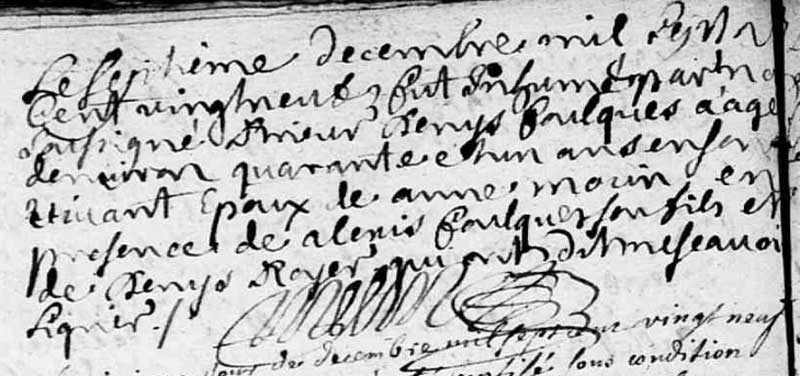 Le septième decembre mil sept
Cent vingtneuf fut Inhumé par no
soussigné Prieur Denys Foulques aagé
denviron quarante et un ans en son
vivant Epoux de anne morin en
presence de alexis foulques son fils et
de Denys Royer qui ont dit ne scavoi
signer /
decembre mil sept cent vingt neuf
sous condition